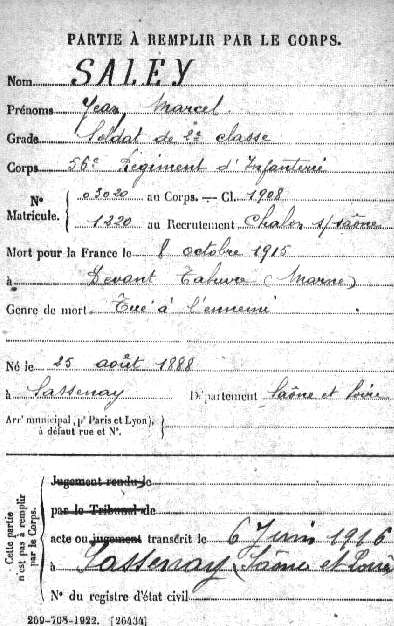 PARTIE À REMPLIR PAR LE CORPS.
Nom SALEY
Prénoms Jean Marcel
Grade Soldat de 2e classe
Corps 56e Régiment d'Infanterie
N° Matricule. { 03020 au Corps. — Cl. 1908
1220 au Recrutement Chalon s/saône
Mort pour la France le 8 octobre 1915
à Devant Tahure (Marne)
Genre de mort Tué à l'ennemi
Né le 25 août 1888
à Sassenay Département Saône et Loire
Arrt municipal (pr Paris et Lyon),
à défaut rue et N°.
Cette partie
n'est pas à remplir
par le Corps.
Jugement rendu le
par le Tribunal de
acte ou jugement transcrit le 6 Juin 1916
à Sassenay (Saône et Loire)
N° du registre d'état civil
269-708-1922. [26434]